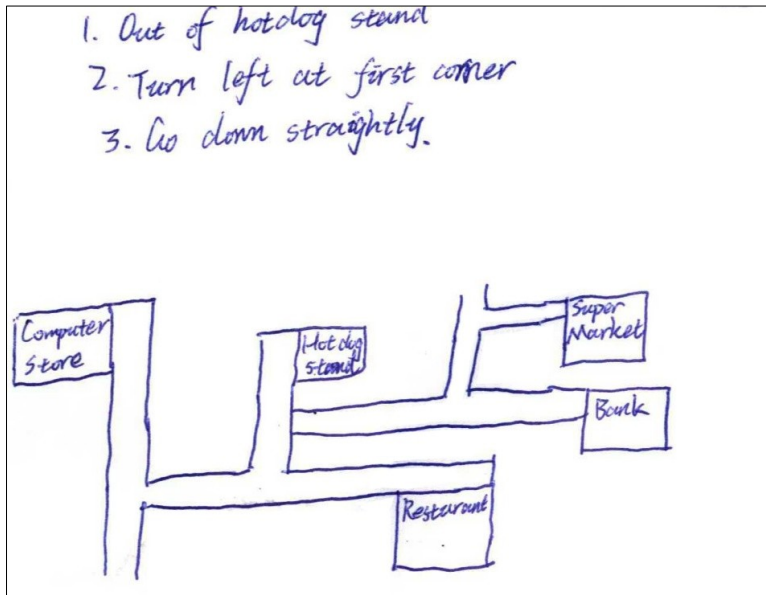 1. Out of hotdog stand
2. Turn left at first corner
3. Go down straightly.
Computer
Store
Hotdog
stand
Super
Market
Bank
Resturant